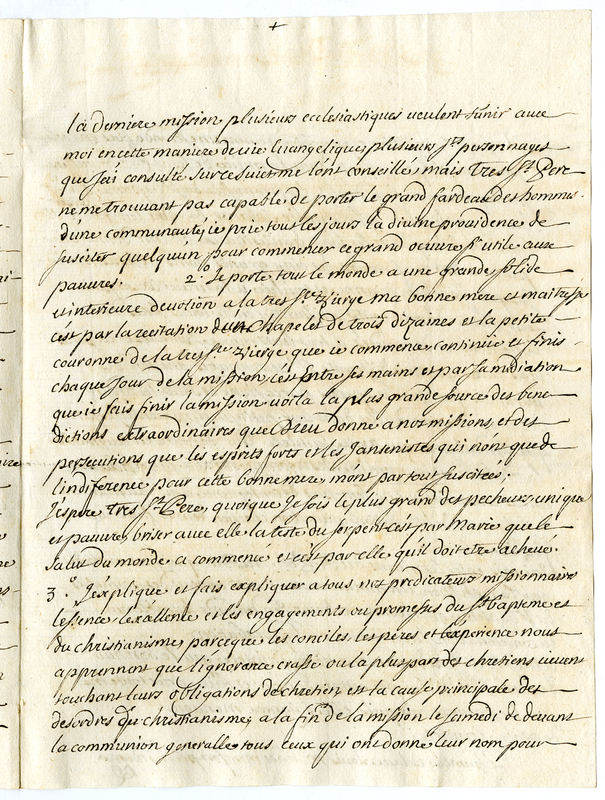 +
la derniere mission plusieurs ecclesiastiques veulent sunir avec
moi en cette maniere de vie Evangelique, plusieurs Sts personnages
que J'ai consulté sur ce suiet me lont conseillé, mais Tres St Pere
ne me trouvant pas capable de porter le grand fardeau des hommes
dune communauté, ie prie tous les jours la divine providence de
susciter quelquun pour commencer ce grand oeuvre si utile aux
pauvres. 2° Je porte tout le monde a une grande solide
et interieure devotion a la tres Ste vierge ma bonne mere et maitresse
c'est par la recitation dun chapelet de trois dizaines et la petite
couronne de la tres Ste vierge que ie commence, continue et finis
chaque jour de la mission, c'est entre ses mains et par sa mediation
que ie fais finir la mission voila la plus grande source des bene
dictions extraordinaires que Dieu donne a nos missions, et des
persecutions que les esprits forts et les Jansenistes qui nont que de
l'indiference pour cette bonne mere, m'ont par tout suscitées;
J'espere Tres St Pere, quoique Je sois le plus grand des pecheurs, unique
et pauvre, briser avec elle la teste du serpent c'est par Marie que le
salut du monde a commencé et c'est par elle qu'il doit etre achevé.
3° J'explique et fais expliquer a tous nos predicateurs missionnaires
l'essence l'exellence et les engagements ou promesses du St bapteme et
du christianisme, parceque les conciles, les peres et l'experience nous
apprennent que l'ignorance crasse ou la pluspart des chretiens vivent
touchant leurs obligations de chretien est la cause principale des
desordres du christianisme; a la fin de la mission le samedi de devant
la communion generalle tous ceux qui ont donné leur nom pour